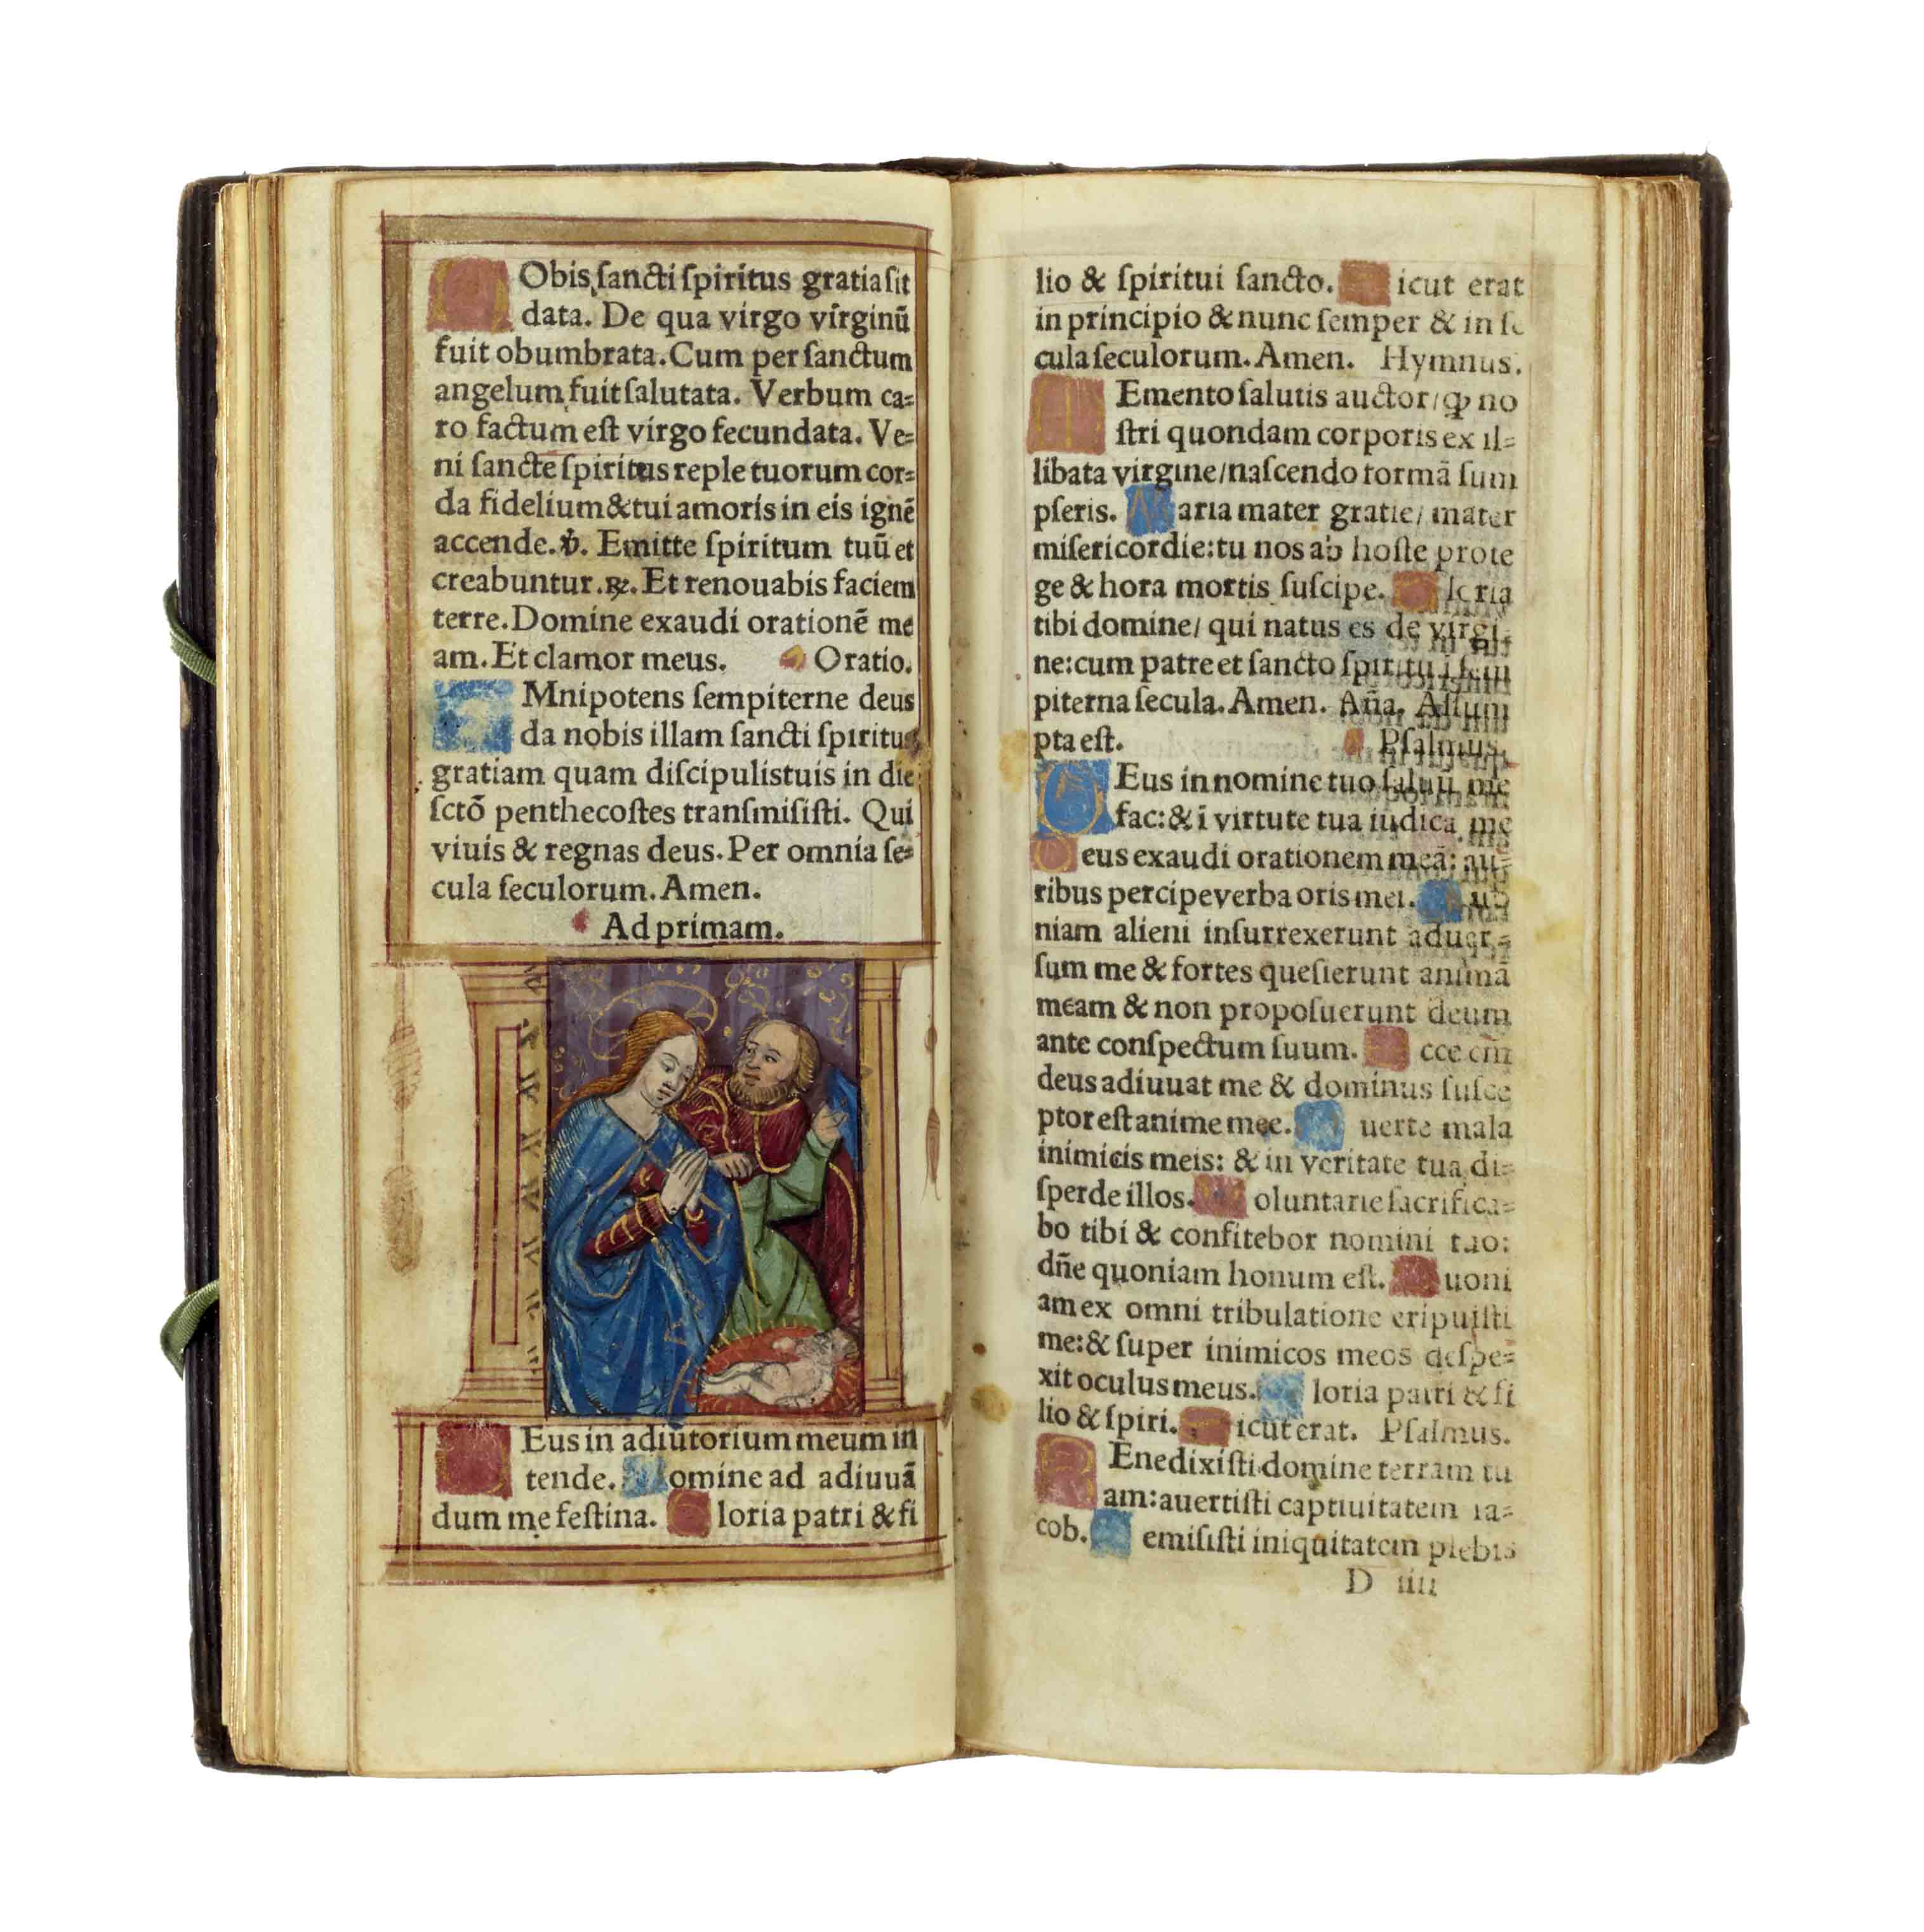 NObis sancti spiritus gratia sit
data. De qua virgo virginū
fuit obumbrata. Cum per sanctum
angelum fuit salutata. Verbum ca=
ro factum est virgo fecundata. Ve=
ni sancte spiritus reple tuorum cor=
da fidelium & tui amoris in eis ignē
accende. ℣. Emitte spiritum tuū et
creabuntur. ℟. Et renouabis faciem
terre. Domine exaudi orationē me
am. Et clamor meus. Oratio.
OMnipotens sempiterne deus
da nobis illam sancti spiritus
gratiam quam discipulis tuis in die
sctō penthecostes transmisisti. Qui
viuis & regnas deus. Per omnia se=
cula seculorum. Amen.
Ad primam.
DEus in adiutorium meum in
tende. Domine ad adiuuā
dum me festina. Gloria patri & fi
lio & spiritui sancto. Sicut erat
in principio & nunc semper & in se
cula seculorum. Amen. Hymnus.
MEmento salutis auctor / ꝙ no
stri quondam corporis ex il=
libata virgine / nascendo formā sum
pseris. Maria mater gratie / mater
misericordie: tu nos ab hoste prote
ge & hora mortis suscipe. Gloria
tibi domine / qui natus es de virgi
ne: cum patre et sancto spiritu ī sem
piterna secula. Amen. Aña. Assum
pta est. Psalmus.
DEus in nomine tuo saluū me
fac: & ī virtute tua iudica me
Deus exaudi orationem meā: au=
ribus percipe verba oris mei. Quo
niam alieni insurrexerunt aduer=
sum me & fortes quesierunt animā
meam & non proposuerunt deum
ante conspectum suum. Ecce em̄
deus adiuuat me & dominus susce
ptor est anime mee. Auerte mala
inimicis meis: & in veritate tua di=
sperde illos. Voluntarie sacrifica=
bo tibi & confitebor nomini tuo:
dn̄e quoniam honum est. Quoni
am ex omni tribulatione eripuisti
me: & super inimicos meos despe=
xit oculus meus. Gloria patri & fi
lio & spiri. Sicut erat. Psalmus.
BEnedixisti domine terram tu
am: auertisti captiuitatem ia=
cob. Remisisti iniquitatem plebis
D iiii